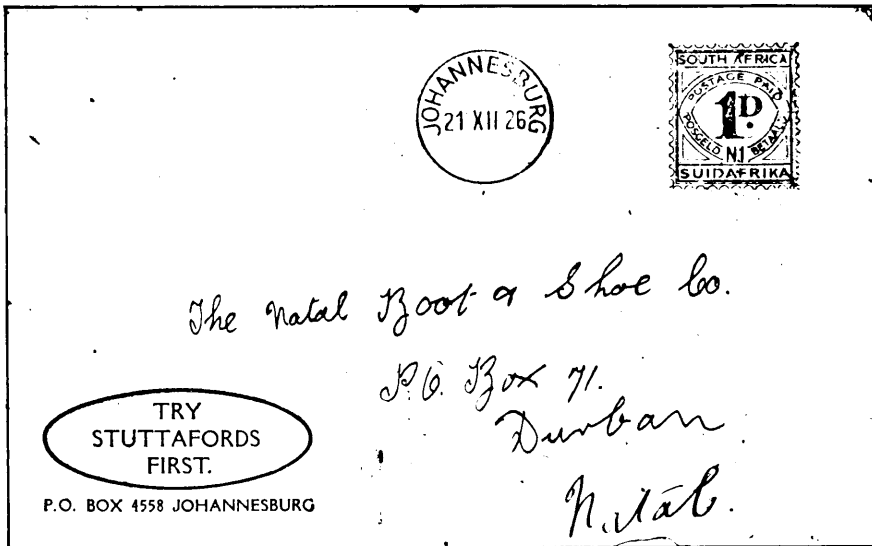 JOHANNESBURG
21 XII 26
SOUTH AFRICA
POSTAGE PAID
1D.
POSGELD BETAAL
N.1
SUIDAFRIKA
The Natal Boot & Shoe Co.
P.O. Box 71.
Durban
Natal.
TRY
STUTTAFORDS
FIRST.
P.O. BOX 4558 JOHANNESBURG